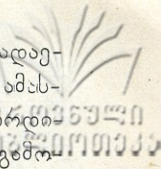 ადაე-
ამას-
რდი-
გამო-
ეროვნული
ბიბლიოთეკა